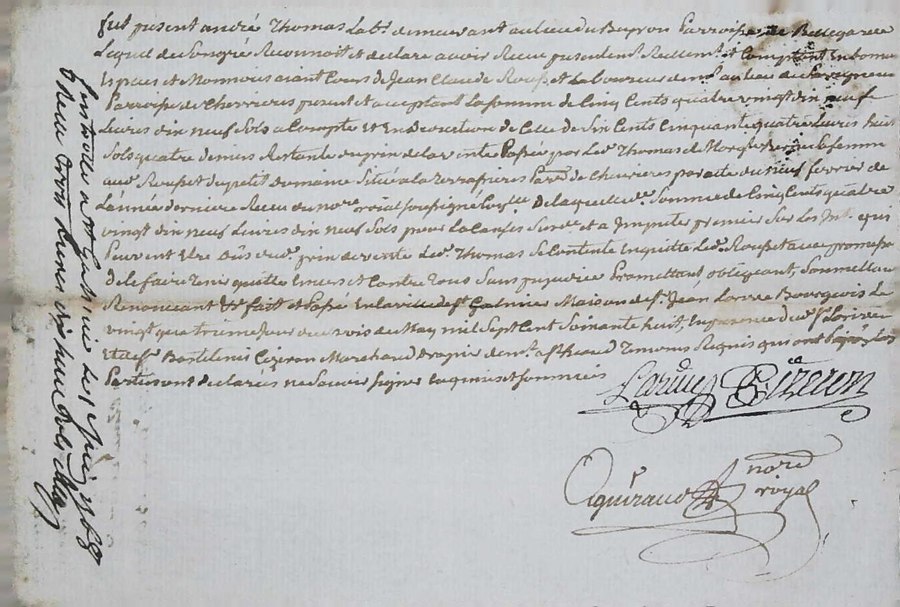 fut present andré Thomas Lab.r demeurant au lieu du Beyron Parroisse de Bellegarde
Lequel de son gré Reconnoit et declare avoir Receu presentem.t Reellem.t et Comptant en bonnes
Especes et Monnois aiant Cours de Jean Claude Rouset Laboureur dem.t au lieu de
Parroisse de Chevrieres present et acceptant La somme de Cinq Cents quatre vingt dix neuf
Livres dix neuf Sols a Compte Et En Deduction de Celle de Six Cents Cinquante quatre Livres huit
Sols quatre deniers Restante du prix de la vente Passée par Led. Thomas et sa femme
aud. Rouset du petit domaine Situé a la Terrassieres Parr.se de Chevrieres par acte du neuf fevrier de
L'année derniere Receu du no.re roial soussigné de laquelle d. Somme de Cinq Cents quatre
vingt dix neuf Livres dix neuf Sols pour la Causes Susd.e et a Imputer premier Sur Les Int. qui
Peuvent Etre Dûs dud. prix de vente Led. Thomas Se Contente En quitte Led. Rouset avec promesse
de le faire tenir quitte Envers et Contre tous Sans prejudice Promettant, obligeant, Soumettant
Renonceant &c fait et Passé En la ville de S.t Galmier Maison de S.r Jean Larive Bourgeois Le
vingt quatrieme Jour du mois de May mil Sept Cent Soixante huit, En presence dud. S.r Larive
Et de S.r Barthelemi Cizeron Marchand Drapier dem.t a S.t heand Temoins Requis qui ont Signé, Les
Parties ont declarées ne Savoir signer Enquises et Sommées
Larive Cizeron
Aguiraud no.re royal
Controllé a S.t Galmier Le 1 Juin 1768
Receu trois Livres dix huit Sols